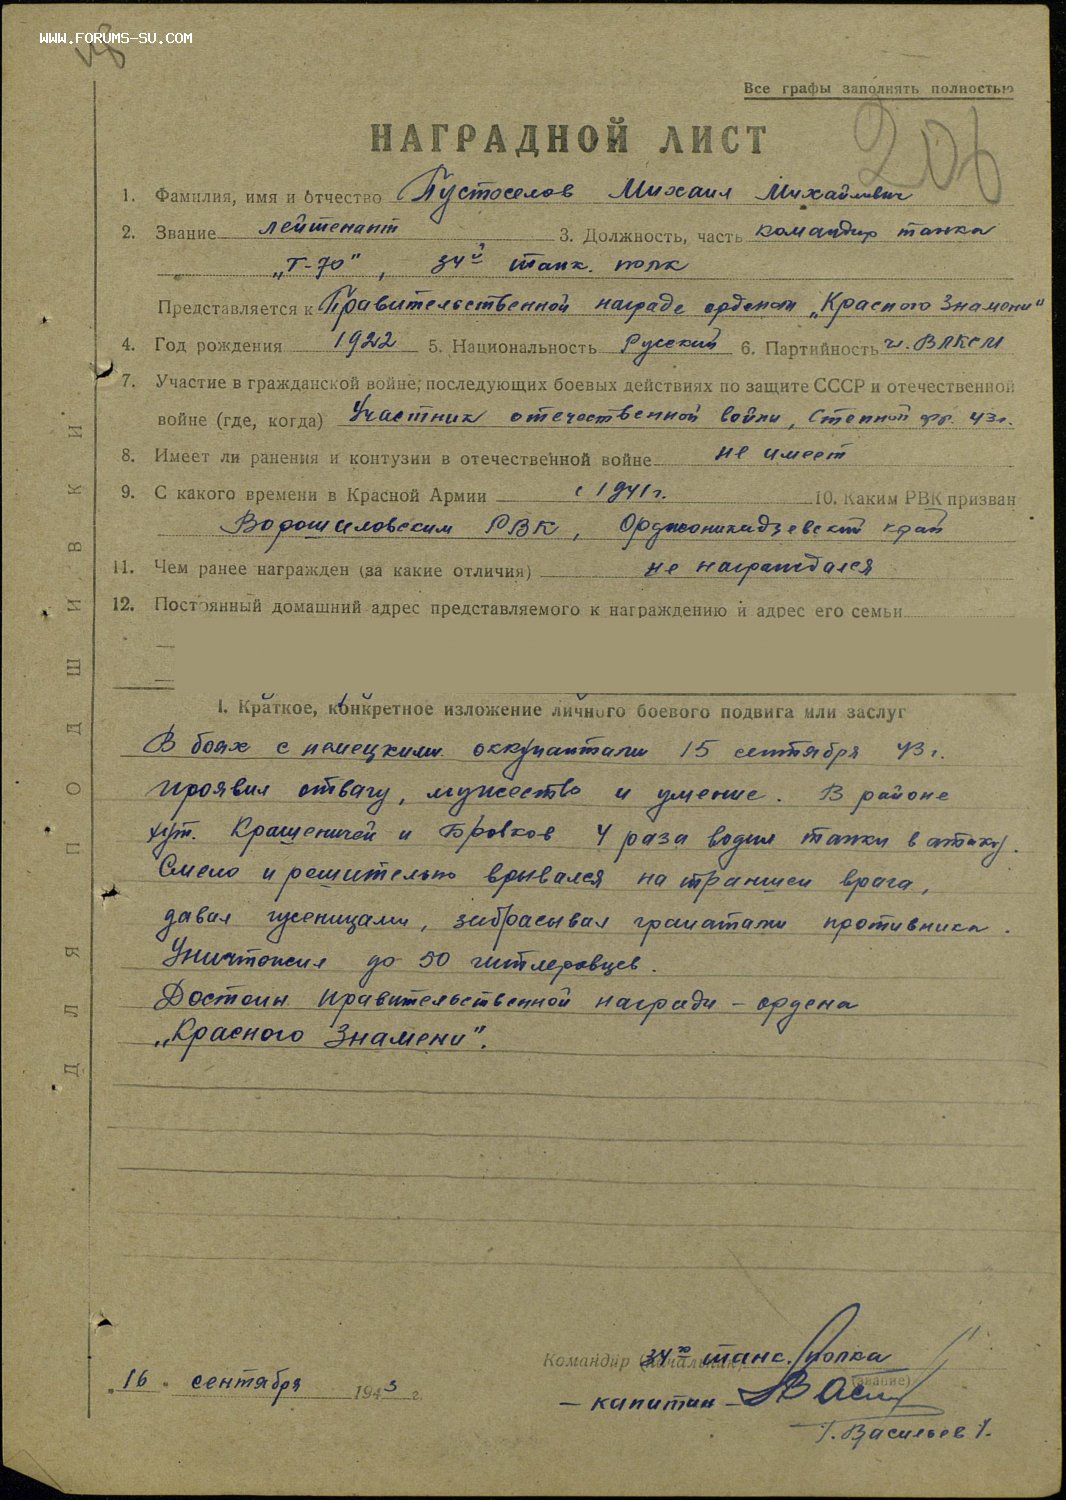 www.forums-su.com
Все графы заполнять полностью
206
НАГРАДНОЙ ЛИСТ
1. Фамилия, имя и отчество Пустоселов Михаил Михайлович
2. Звание лейтенант 3. Должность, часть командир танка
„Т-70", 34й танк. полк
Представляется к Правительственной награде орденом „Красного Знамени"
4. Год рождения 1922 5. Национальность Русский 6. Партийность ч. ВЛКСМ
7. Участие в гражданской войне, последующих боевых действиях по защите СССР и отечественной
войне (где, когда) Участник отечественной войны, Степной фр. 43г.
8. Имеет ли ранения и контузии в отечественной войне не имеет
9. С какого времени в Красной Армии с 1941г. 10. Каким РВК призван
Ворошиловским РВК, Орджоникидзевский край
11. Чем ранее награжден (за какие отличия) не награждался
12. Постоянный домашний адрес представляемого к награждению и адрес его семьи
I. Краткое, конкретное изложение личного боевого подвига или заслуг
В боях с немецкими оккупантами 15 сентября 43г.
проявил отвагу, мужество и умение. В районе
хут. Крашеничей и Бровков 4 раза водил танки в атаку.
Смело и решительно врывался на траншеи врага,
давая гусеницами, забрасывая гранатами противника.
Уничтожил до 50 гитлеровцев.
Достоин правительственной награды – ордена
„Красного Знамени".
Командир (начальник) 34го танк. полка
„16" сентября 1943 г.
(звание)
– капитан –
/ Васильев /.
ДЛЯ ПОДШИВКИ